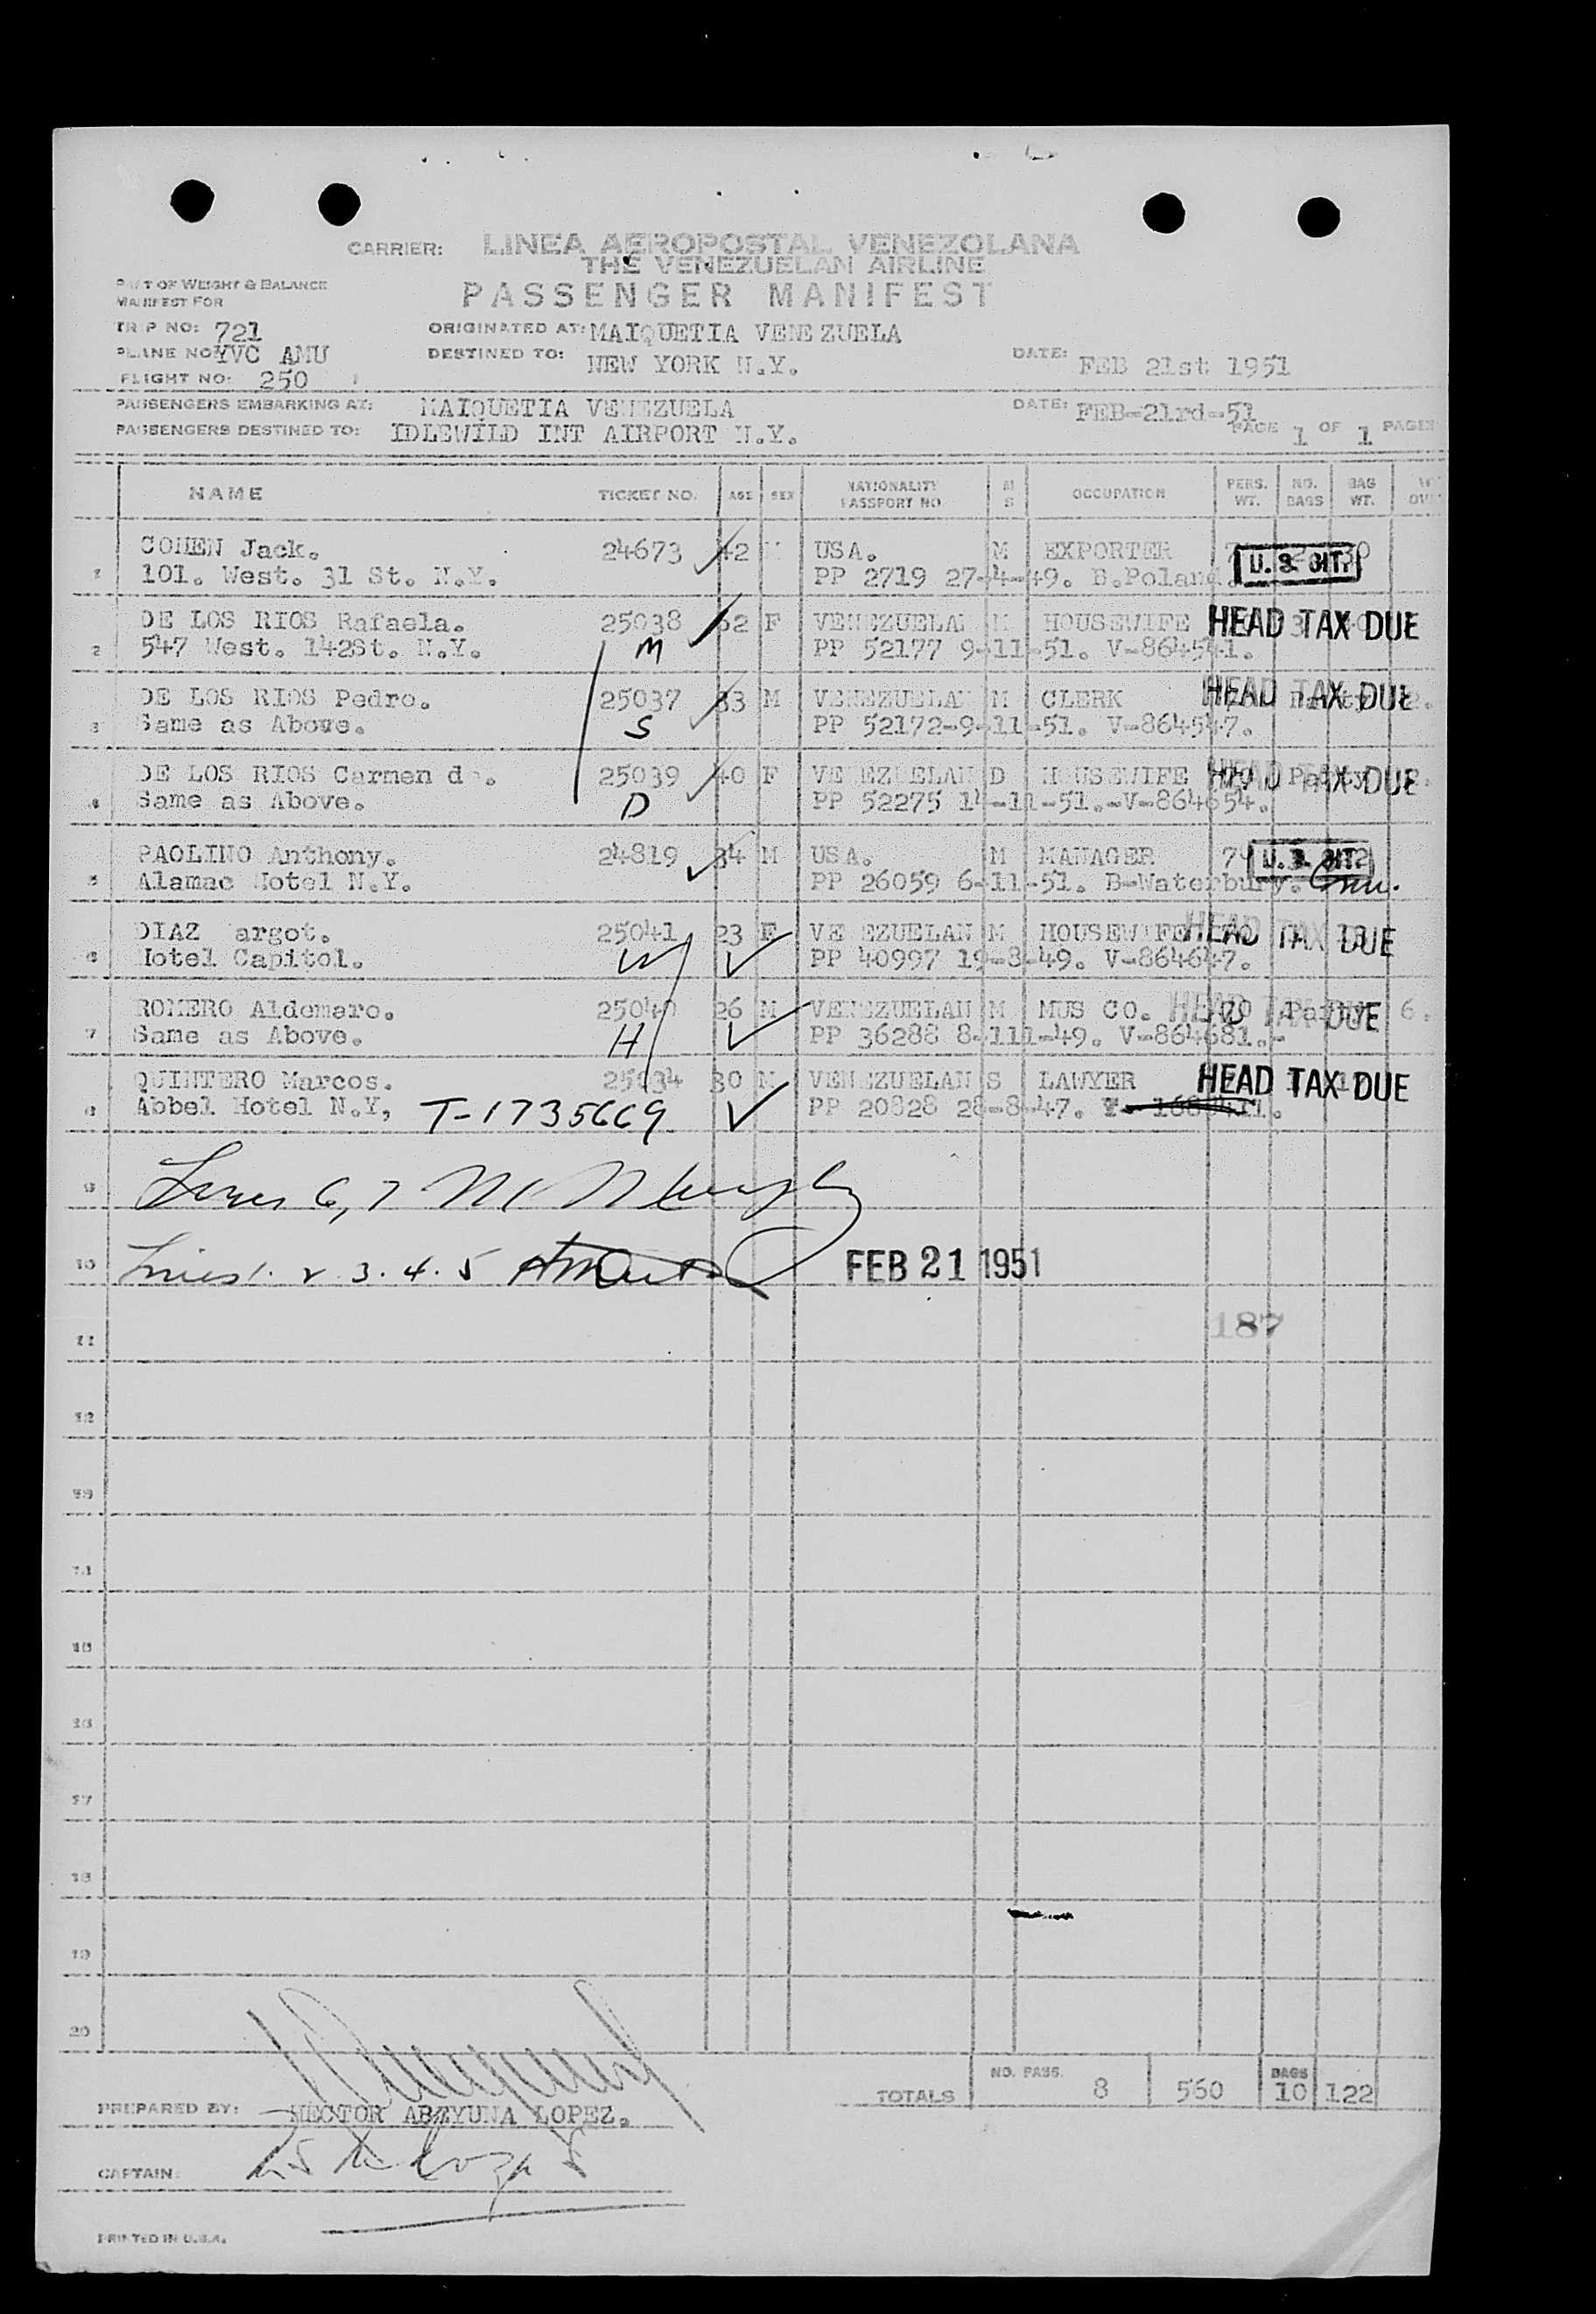 CARRIER: LINEA AEROPOSTAL VENEZOLANA
THE VENEZUELAN AIRLINE
PART OF WEIGHT & BALANCE
MANIFEST FOR
PASSENGER MANIFEST
TRIP NO: 721 ORIGINATED AT: MAIQUETIA VENEZUELA
PLANE NO: YVC AMU DESTINED TO: NEW YORK N.Y. DATE: FEB 21st 1951
FLIGHT NO: 250
PASSENGERS EMBARKING AT: MAIQUETIA VENEZUELA DATE: FEB-21rd-51
PASSENGERS DESTINED TO: IDLEWILD INT AIRPORT N.Y. PAGE 1 OF 1 PAGES
NAME TICKET NO. AGE SEX NATIONALITY PASSPORT NO M S OCCUPATION PERS. WT. NO. BAGS BAG WT.
COHEN Jack. 24673 42 M USA. M EXPORTER
1 101. West. 31 St. N.Y. PP 2719 27-4-49. B.Poland. U. S. CIT.
DE LOS RIOS Rafaela. 25038 62 F VENEZUELAN M HOUSEWIFE HEAD TAX DUE
2 547 West. 142St. N.Y. M PP 52177 9-11-51. V-864541.
DE LOS RIOS Pedro. 25037 33 M VENEZUELAN M CLERK HEAD TAX DUE
3 Same as Above. S PP 52172-9-11-51. V-864547.
DE LOS RIOS Carmen de. 25039 40 F VENEZUELAN D HOUSEWIFE HEAD TAX DUE
4 Same as Above. D PP 52275 14-11-51.-V-864654.
PAOLINO Anthony. 24819 34 M USA. M MANAGER U. S. CIT.
5 Alamac Hotel N.Y. PP 26059 6-11-51. B-Waterbury. Conn.
DIAZ argot. 25041 23 F VENEZUELAN M HOUSEWIFE HEAD TAX DUE
6 Hotel Capitol. W PP 40997 19-8-49. V-864647.
ROMERO Aldemaro. 25040 26 M VENEZUELAN M MUS CO. 70 HEAD TAX DUE
7 Same as Above. H PP 36288 8-111-49. V-864681.-
QUINTERO Marcos. 25034 30 M VENEZUELAN S LAWYER HEAD TAX DUE
8 Abbel Hotel N.Y, T-1735669 PP 20828 28-8-47.
9 Lines 6, 7
10 Lines 1. 2. 3. 4. 5 FEB 21 1951
11 187
12
13
14
15
16
17
18
19
20
TOTALS NO. PASS. 8 560 BAGS 10 122
PREPARED BY: HECTOR ABZYUNA LOPEZ.
CAPTAIN:
PRINTED IN U.S.A.